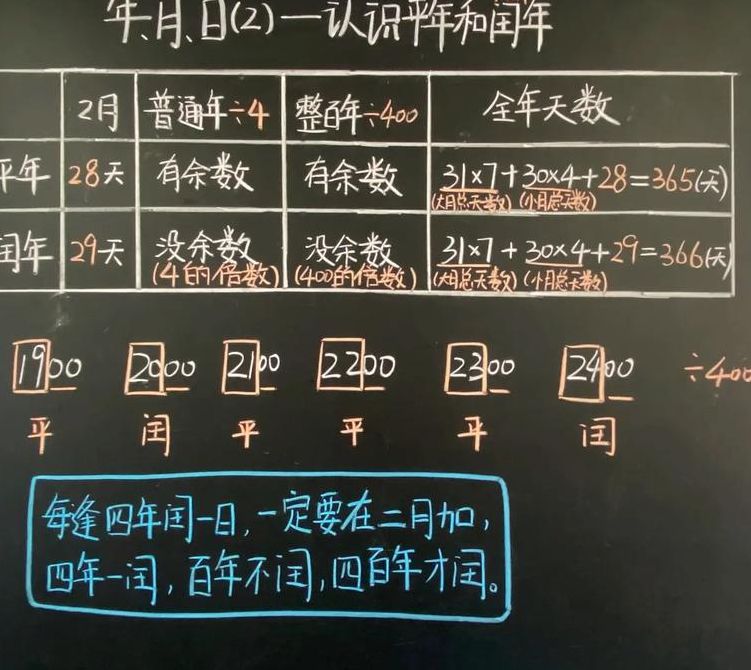 年、月、日(2)—认识平年和闰年
2月 普通年÷4 整百年÷400 全年天数
平年 28天 有余数 有余数 31×7+30×4+28=365(天)
(大月总天数) (小月总天数)
闰年 29天 没余数 没余数 31×7+30×4+29=366(天)
(4的倍数) (400的倍数) (大月总天数) (小月总天数)
1900 2000 2100 2200 2300 2400 ÷400
平 闰 平 平 平 闰
每逢四年闰一日,一定要在二月加,
四年一闰,百年不闰,四百年才闰。